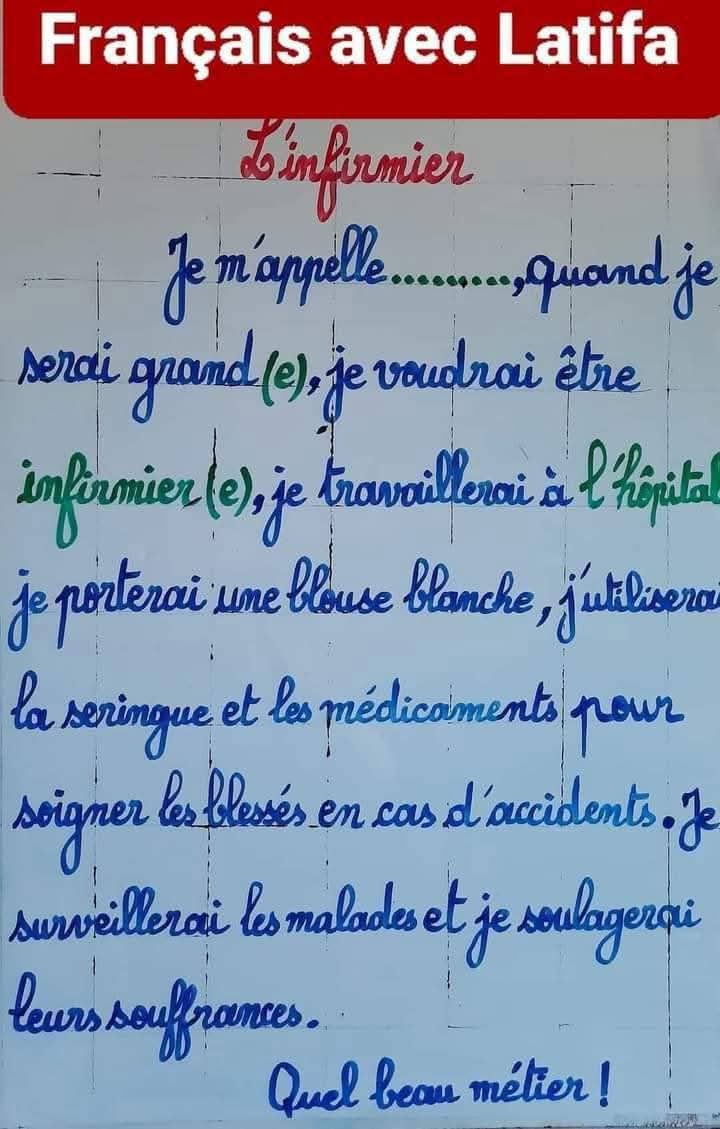 Français avec Latifa
L'infirmier
Je m'appelle.........,quand je
serai grand(e), je voudrai être
infirmier(e), je travaillerai à l'hôpital
je porterai une blouse blanche, j'utiliserai
la seringue et les médicaments pour
soigner les blessés en cas d'accidents. Je
surveillerai les malades et je soulagerai
leurs souffrances.
Quel beau métier !